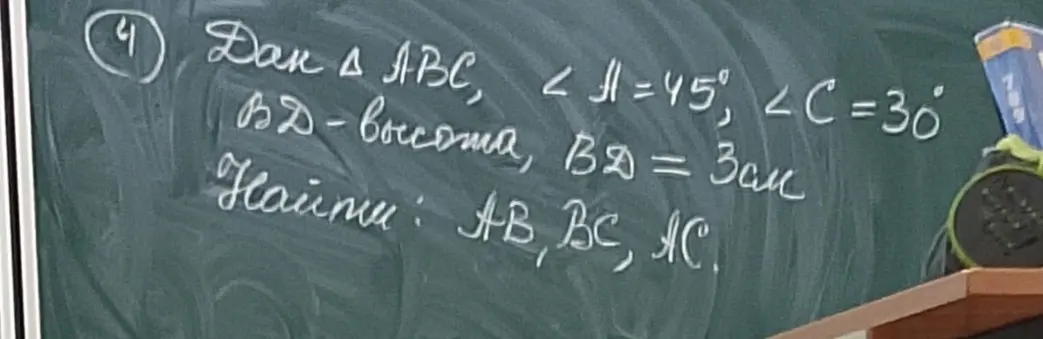 4 Дан Δ ABC, ∠ A = 45°, ∠ C = 30°
ВД - высота, ВД = 3 см
Найти: AB, BC, AC.